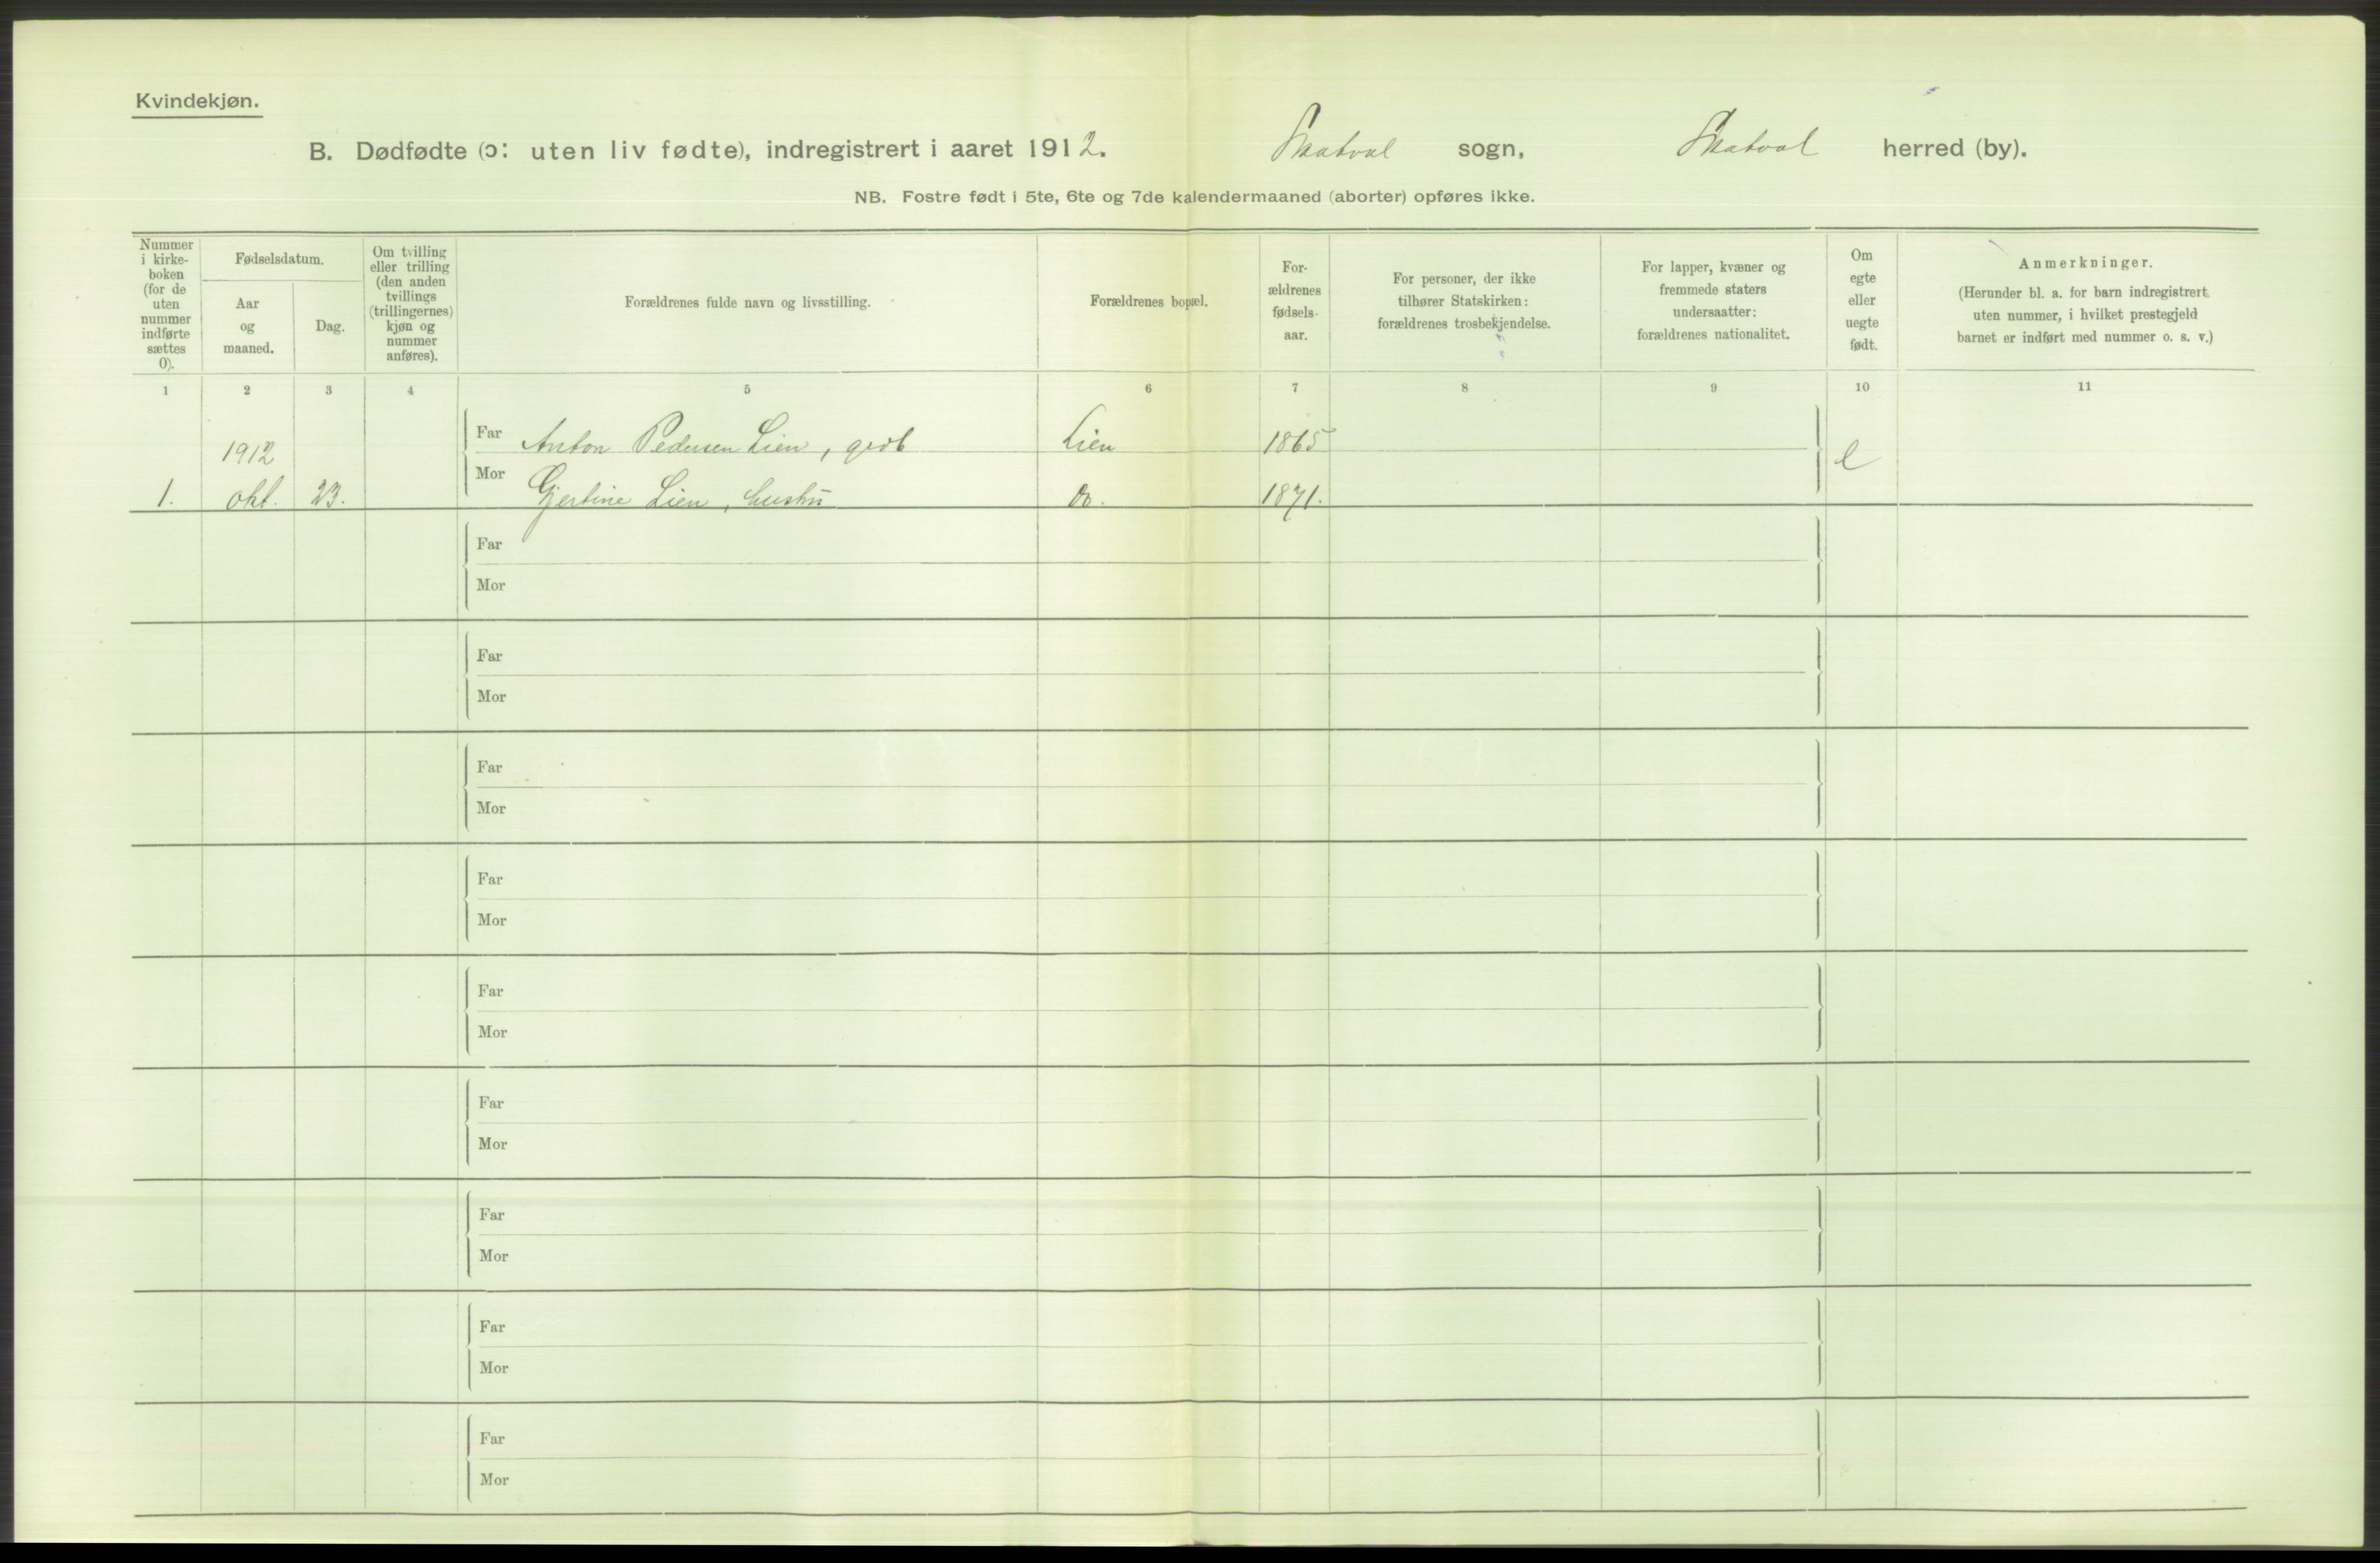 Kvindekjøn.
B. Dødfødte (ɔ: uten liv fødte), indregistrert i aaret 1912. Skatval sogn, Skatval herred (by).
NB. Fostre født i 5te, 6te og 7de kalendermaaned (aborter) opføres ikke.
Nummer
i kirke-
boken
(for de
uten
nummer
indførte
sættes
0).
Fødselsdatum.
Aar
og
maaned.
Dag.
Om tvilling
eller trilling
(den anden
tvillings
(trillingernes)
kjøn og
nummer
anføres).
Forældrenes fulde navn og livsstilling.
Forældrenes bopæl.
For-
ældrenes
fødsels-
aar.
For personer, der ikke
tilhører Statskirken:
forældrenes trosbekjendelse.
For lapper, kvæner og
fremmede staters
undersaatter:
forældrenes nationalitet.
Om
egte
eller
uegte
født.
Anmerkninger.
(Herunder bl. a. for barn indregistrert
uten nummer, i hvilket prestegjeld
barnet er indført med nummer o. s. v.)
1 2 3 4 5 6 7 8 9 10 11
Far Anton Pedersen Lien, grdb Lien 1865
1912 e
1. okt. 23. Mor Gjertine Lien, hustru do. 1871.
Far
Mor
Far
Mor
Far
Mor
Far
Mor
Far
Mor
Far
Mor
Far
Mor
Far
Mor
Far
Mor